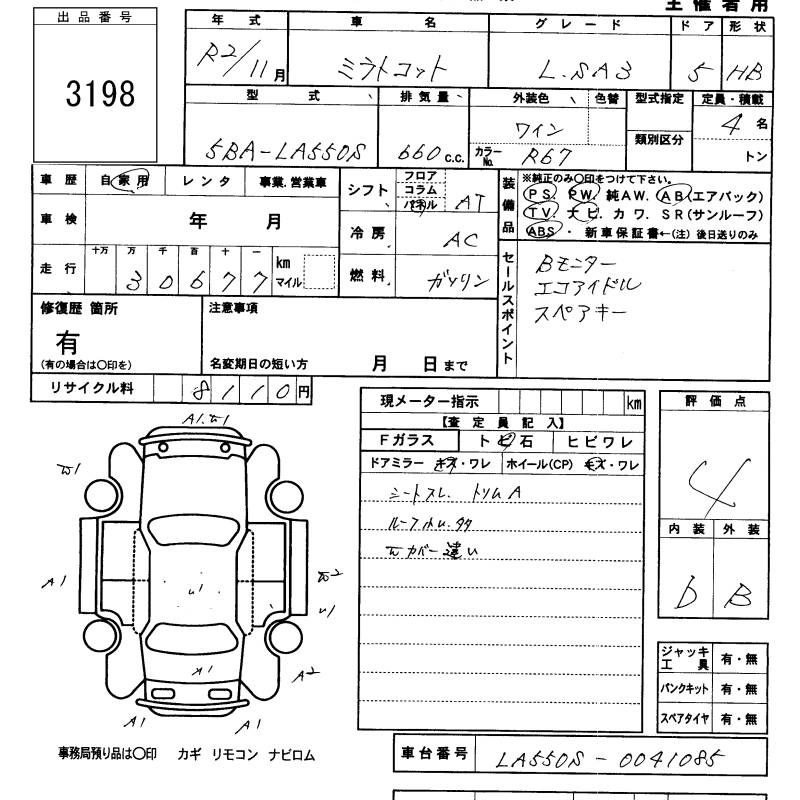 主催者用
出品番号
3198
年式 車名 グレード ドア 形状
R2/11月 ミラトコット L.SA3 5 HB
型式 排気量 外装色 色替 型式指定 定員・積載
類別区分
5BA-LA550S 660c.c. ワイン 4名
カラーNo. R67 トン
車歴 自家用 レンタ 事業.営業車
車検 年 月
走行 十万 万 千 百 十 一 km マイル
3 0 6 7 7
シフト フロア コラム パネル AT
冷房 AC
燃料 ガソリン
装備品 ※純正のみ〇印をつけて下さい。
PS. PW. 純AW. AB(エアバック)
TV. ナビ. カワ. SR(サンルーフ)
ABS・ 新車保証書←(注) 後日送りのみ
セールスポイント
Bモニター
エコアイドル
スペアキー
修復歴 箇所
有
(有の場合は〇印を)
注意事項
名変期日の短い方 月 日まで
リサイクル料 8110円
現メーター指示 km
【査定員記入】
Fガラス トビ石 ヒビワレ
ドアミラー キズ・ワレ ホイール(CP) キズ・ワレ
シートスレ. トリムA
評価点
4
内装 外装
D B
A1
A1
A2
A1 A1
ジャッキ工具 有・無
パンクキット 有・無
スペアタイヤ 有・無
事務局預り品は〇印 カギ リモコン ナビロム
車台番号 LA550S-0041085